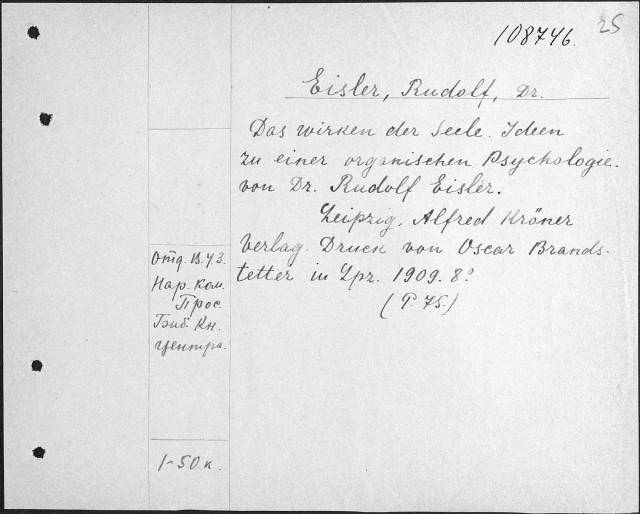 25
108746.
Eisler, Rudolf, Dr.
Das wirken der Seele. Ideen
zu einer organischen Psychologie.
von Dr. Rudolf Eisler.
Leipzig. Alfred Kröner
Verlag. Druck von Oscar Brands-
tetter in Lpz. 1909. 8º
(P. 75.)
Нар. Ком.
Прос.
Библ. Кн.
Центра.
1-50 к.